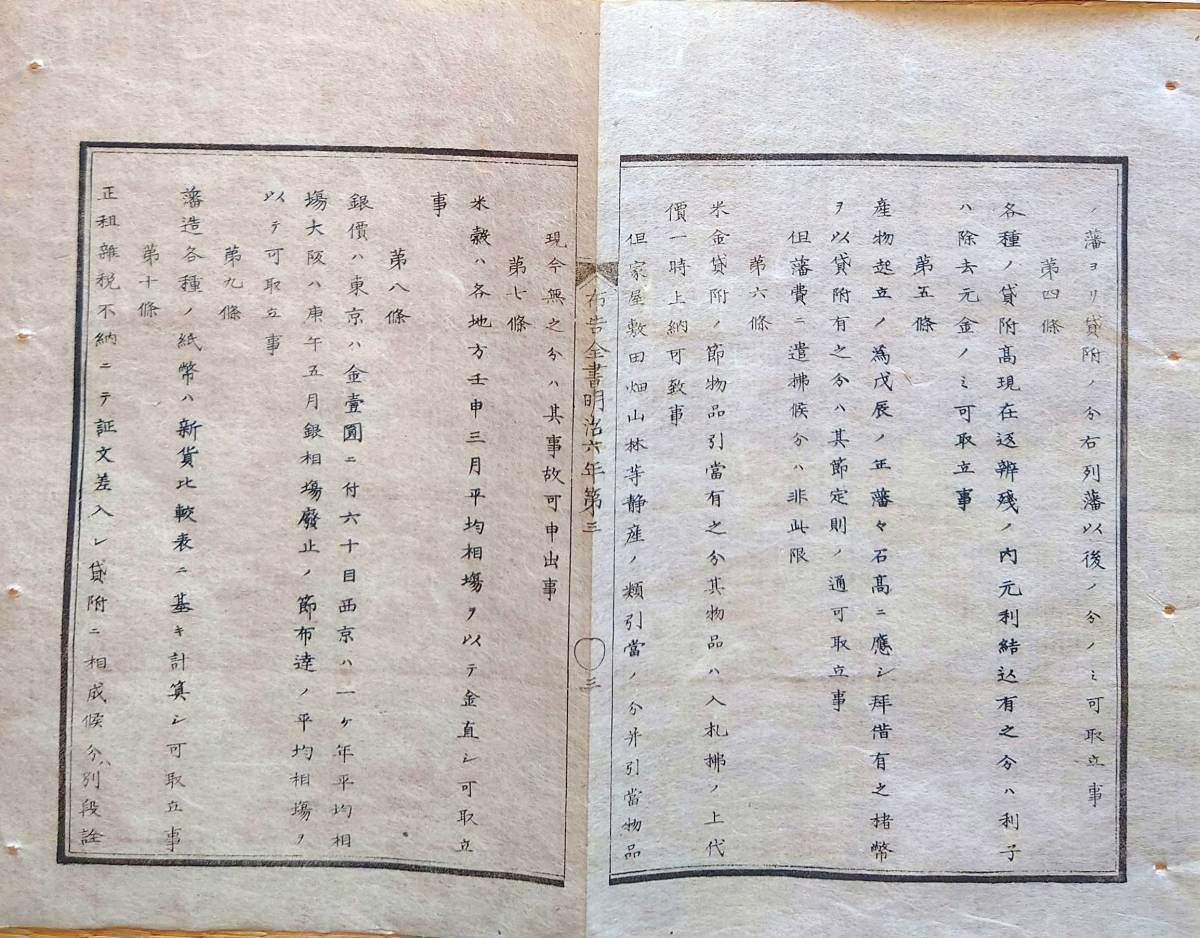 ノ藩ヨリ貸附ノ分右列藩以後ノ分ノミ可取立事
第四條
各種ノ貸附髙現在返辨殘ノ內元利結込有之分ハ利子
ハ除去元金ノミ可取立事
第五條
産物起立ノ為戊辰ノ年藩々石髙ニ應シ拜借有之楮幣
ヲ以貸附有之分ハ其節定則ノ通可取立事
但藩費ニ遣拂候分ハ非此限
第六條
米金貸附ノ節物品引當有之分其物品ハ入札拂ノ上代
價一時上納可致事
但家屋敷田畑山林等静産ノ類引當ノ分并引當物品
布告全書明治六年第三
〇三
現今無之分ハ其事故可申出事
第七條
米穀ハ各地方壬申三月平均相塲ヲ以テ金直シ可取立
事
第八條
銀價ハ東京ハ金壹圓ニ付六十目西京ハ一ケ年平均相
塲大阪ハ庚午五月銀相塲廢止ノ節布達ノ平均相塲ヲ
以テ可取立事
第九條
藩造各種ノ紙幣ハ新貨比較表ニ基キ計算シ可取立事
第十條
正租雜税不納ニテ証文差入レ貸附ニ相成候分ハ別段詮